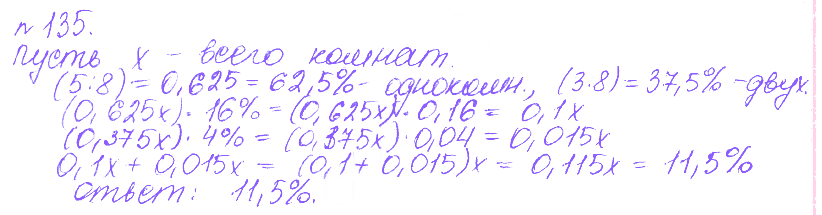 № 135.
Пусть x – всего комнат.
(5:8) = 0,625 = 62,5% - однокомн., (3:8) = 37,5% - двух.
(0,625x) · 16% = (0,625x) · 0,16 = 0,1x
(0,375x) · 4% = (0,375x) · 0,04 = 0,015x
0,1x + 0,015x = (0,1 + 0,015)x = 0,115x = 11,5%
Ответ: 11,5%.